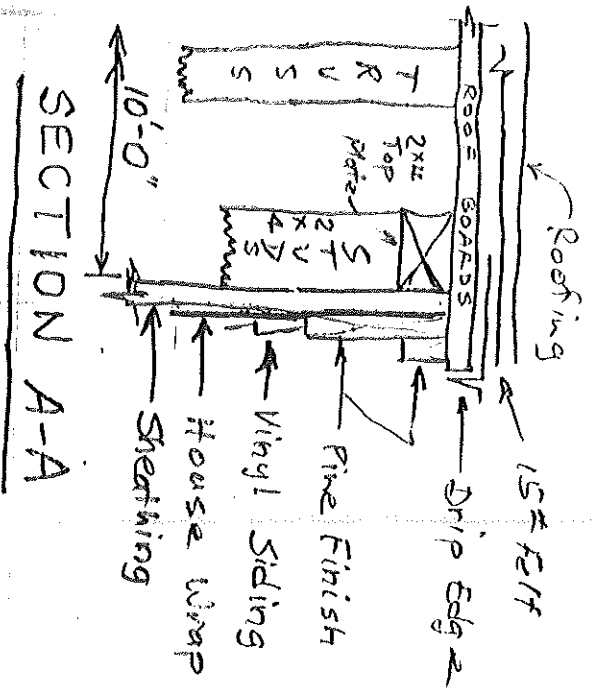 Roofing
15# Felt
Drip Edge
ROOF BOARDS
TRUSS
2x4
Top
Plate
2x4
STUDS
Pine Finish
Vinyl Siding
House Wrap
Sheathing
10'-0"
SECTION A-A